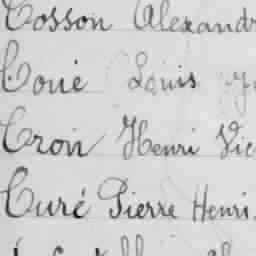 Cosson Alexand
Coué Louis
Cron Henri Vic
Curé Pierre Henri.